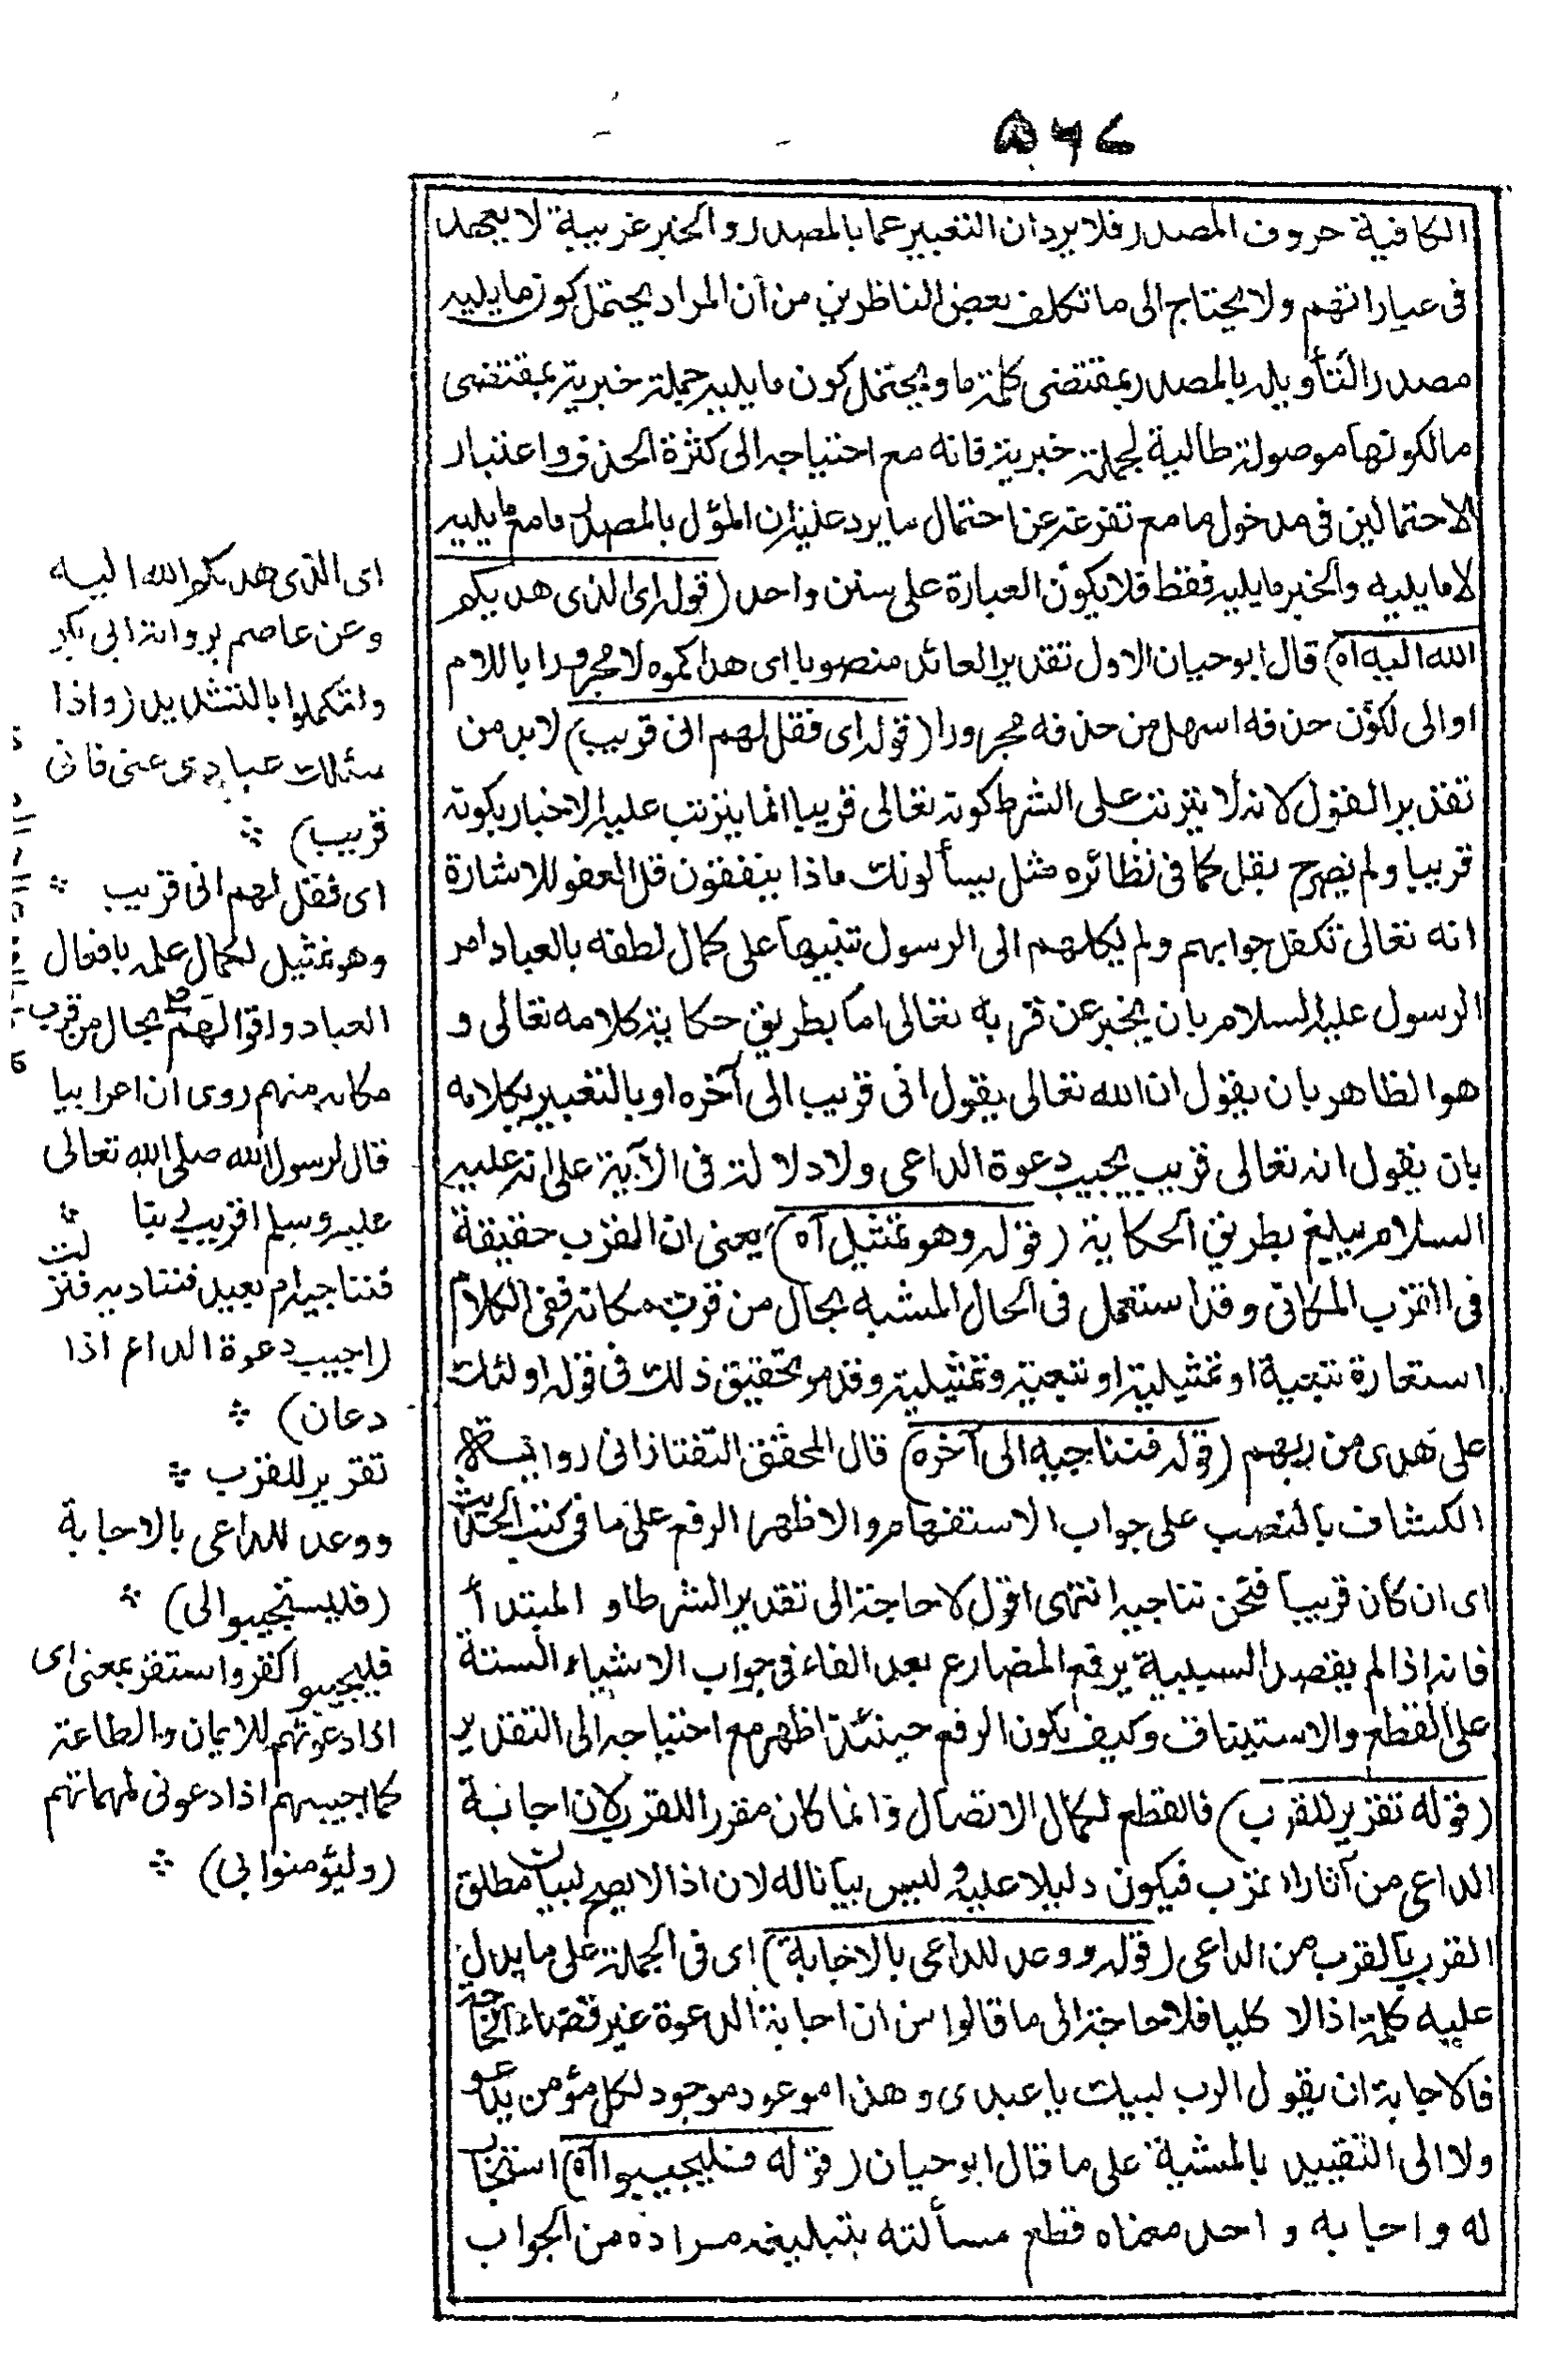 ٥٤٦
الكافية حروف المصدر فلا يرد ان التعبير عما بالمصدر والخبر غريبة لا يعهد
فى عباراتهم ولا يحتاج الى ما تكلف بعض الناظرين من ان المراد يحتمل كون ما يليه
مصدر التأويله بالمصدر بمقتضى كلمة ما ويحتمل كون ما يليه جملة خبرية بمقتضى
ما لكونها موصولة طالبة لجملة خبرية فانه مع احتياجه الى كثرة الحذف واعتبار
الاحتمالين فى مدخول ما مع تفرعه عن احتمال ما يرد عليه ان المؤل بالمصدر ما مع ما يليه
لا ما يليه والخبر ما يليه فقط فلا يكون العبارة على سنن واحد (قوله اى الذى هديكم
الله اليه اه) قال ابو حيان الاول تقدير العائد منصوبا اى هداكموه لا مجرورا باللام
او الى لكون حذفه اسهل من حذفه مجرورا (قوله اى فقل لهم انى قريب) لابد من
تقدير القول لانه لا يترتب على الشرط كونه تعالى قريبا انما يترتب عليه الاخبار بكونه
قريبا ولم يصرح بقل كما فى نظائره مثل يسألونك ماذا ينفقون قل العفو للاشارة
انه تعالى تكفل جوابهم ولم يكلهم الى الرسول تنبيها على كمال لطفه بالعباد امر
الرسول عليه السلام بان يخبر عن قربه تعالى اما بطريق حكاية كلامه تعالى و
هو الظاهر بان يقول ان الله تعالى يقول انى قريب الى آخره او بالتعبير بكلامه
بان يقول انه تعالى قريب يجيب دعوة الداعى ولا دلالة فى الآية على انه عليه
السلام يبلغ بطريق الحكاية (قوله وهو تمثيل آه) يعنى ان القرب حقيقة
فى القرب المكانى وقد استعمل فى الحال المشبه بحال من قرب مكانه ففى الكلام
استعارة تبعية او تمثيلية او تبعية وتمثيلية وقد مر تحقيق ذلك فى قوله اولئك
على هدى من ربهم (قوله فتناجيه الى آخره) قال المحقق التفتازانى رواية
الكشاف بالنصب على جواب الاستفهام والاظهر الرفع على ما فى كتب الحديث
اى ان كان قريبا فنحن نناجيه انتهى اقول لا حاجة الى تقدير الشرط او المبتدأ
فانه اذا لم يقصد السببية يرفع المضارع بعد الفاء فى جواب الاشياء الستة
على القطع والاستيناف وكيف يكون الرفع حينئذ اظهر مع احتياجه الى التقدير
(قوله تقرير للقرب) فالقطع لكمال الاتصال وانما كان مقررا للقرب لان اجابة
الداعى من آثار القرب فيكون دليلا عليه وليس بيانا له لان اذا لا يصح لبيان مطلق
القرب بالقرب من الداعى (قوله ووعد للداعى بالاجابة) اى فى الجملة على ما يدل
عليه كلمة اذا لا كليا فلا حاجة الى ما قالوا من ان اجابة الدعوة غير قضاء الحاجة
فالاجابة ان يقول الرب لبيك يا عبدى وهذا موعود موجود لكل مؤمن يدعو
ولا الى التقييد بالمشية على ما قال ابو حيان (قوله فليجيبوا آه) استجاب
له واجابه واحد معناه قطع مسألته بتبليغه مراده من الجواب
اى الذى هديكم الله اليه
وعن عاصم برواية ابى بكر
ولتكملوا بالتشديد (واذا
سئلك عبادى عنى فانى
قريب)
اى فقل لهم انى قريب
وهو تمثيل لكمال علمه بافعال
العباد واقوالهم بحال من قرب
مكانه منهم روى ان اعرابيا
قال لرسول الله صلى الله تعالى
عليه وسلم اقريب ربنا
فنناجيه ام بعيد فنناديه فنزلت
(اجيب دعوة الداع اذا
دعان)
تقرير للقرب
ووعد للداعى بالاجابة
(فليستجيبوا لى)
فليجيبوا
اذا دعوتهم للايمان والطاعة
كما اجيبهم اذا دعونى لمهماتهم
(وليؤمنوا بى)